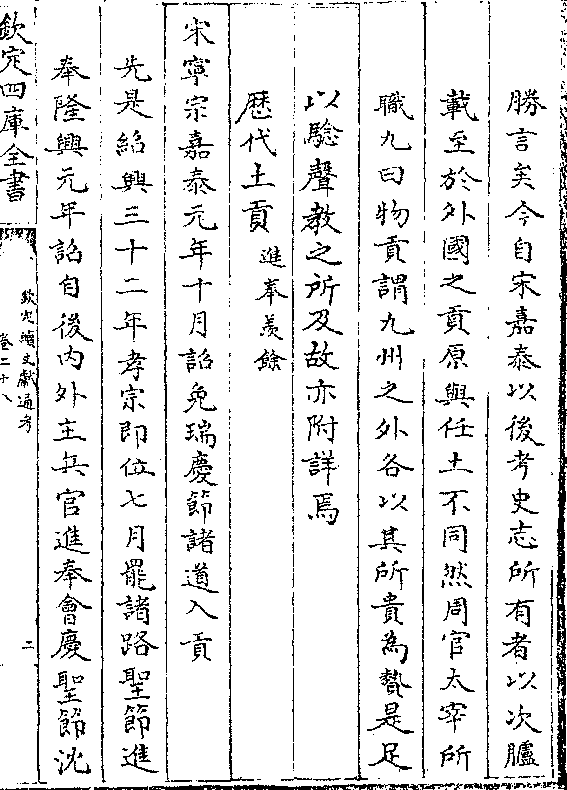 勝言矣今自宋嘉泰以後考史志所有者以次臚
載至於外國之貢原與任土不同然周官太宰所
職九曰物貢謂九州之外各以其所貴為贄是足
以驗聲教之所及故亦附詳焉
歴代土貢進奉羨餘
宋寧宗嘉泰元年十月詔免瑞慶節諸道入貢
先是紹興三十二年孝宗即位七月罷諸路聖節進
奉隆興元年詔自後内外主兵官進奉會慶聖節沈
欽定四庫全書
欽定續文獻通考
卷二十八
二